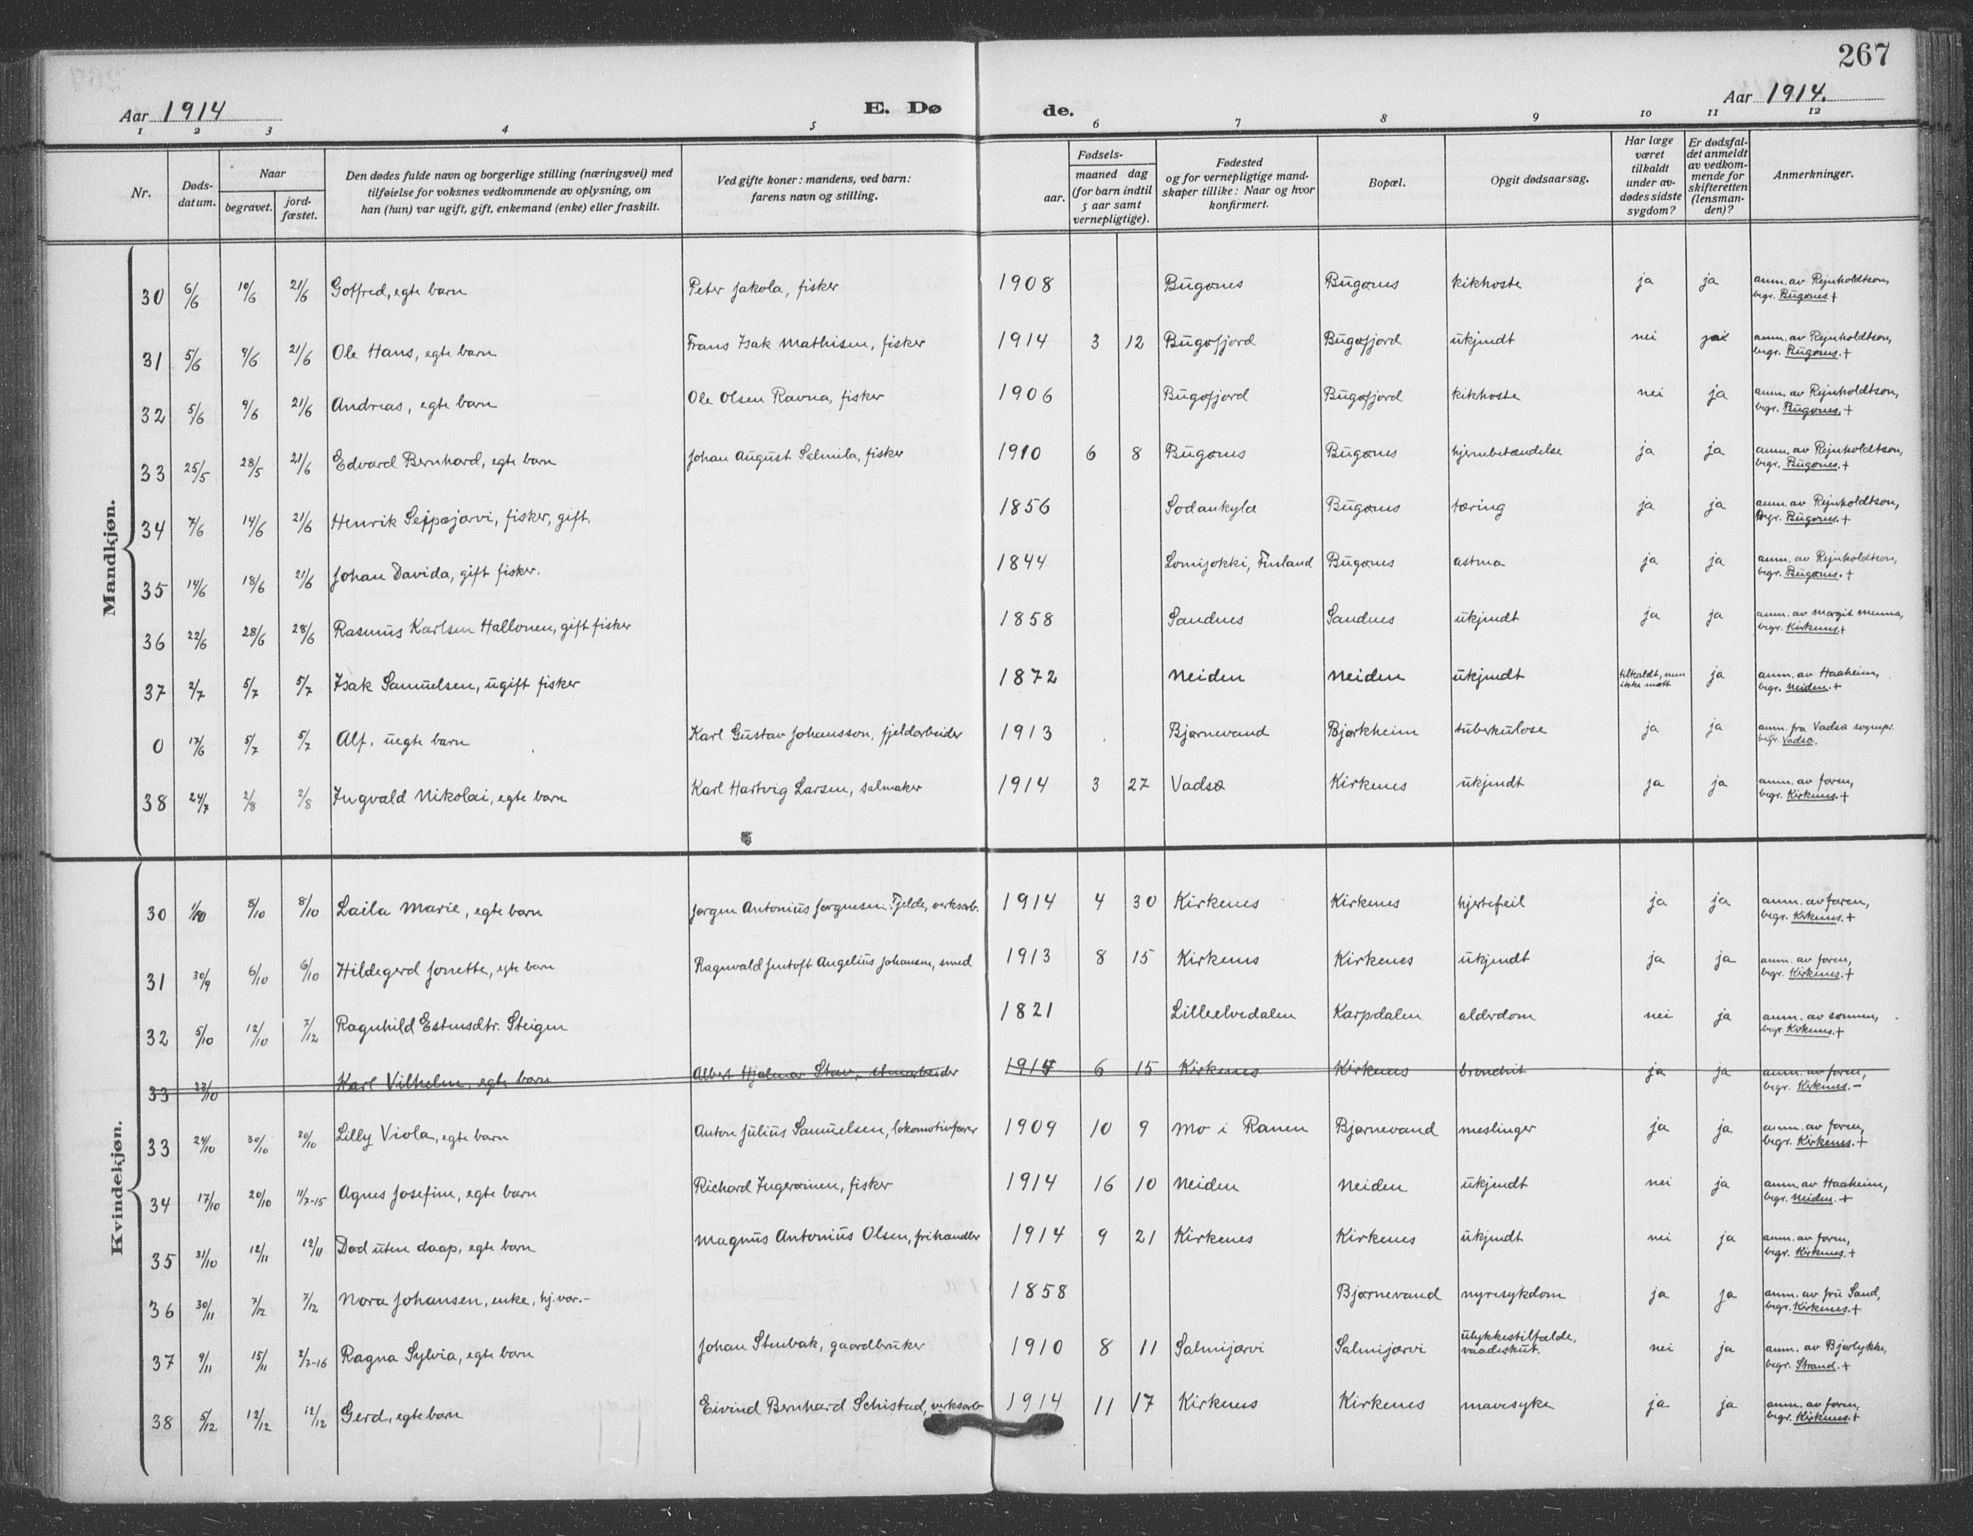 267
Aar 1914
E. Dø
de.
Aar 1914.
1 2 3 4 5 6 7 8 9 10 11 12
Nr.
Døds-
datum.
Naar
begravet.
jord-
fæstet.
Den dødes fulde navn og borgerlige stilling (næringsvei) med
tilføielse for voksnes vedkommende av oplysning, om
han (hun) var ugift, gift, enkemand (enke) eller fraskilt.
Ved gifte koner: mandens, ved barn:
farens navn og stilling.
Fødsels-
aar.
maaned dag
(for barn indtil
5 aar samt
vernepligtige).
Fødested
og for vernepligtige mand-
skaper tillike: Naar og hvor
konfirmert.
Bopæl.
Opgit dødsaarsag.
Har læge
været
tilkaldt
under av-
dødes sidste
sygdom?
Er dødsfal-
det anmeldt
av vedkom-
mende for
skifteretten
(lensman-
den)?
Anmerkninger.
Mandkjøn.
30 6/6 10/6 21/6 Gotfred, egte barn Peter Jakola, fisker 1908 Bugønes Bugønes kikhoste ja ja anm. av Rejnholdtson,
begr. Bugønes +
31 5/6 9/6 21/6 Ole Hans, egte barn Frans Isak Mathisen, fisker 1914 3 12 Bugøfjord Bugøfjord ukjendt nei anm. av Rejnholdtson,
begr. Bugønes. +
32 5/6 9/6 21/6 Andreas, egte barn Ole Olsen Ravna, fisker 1906 Bugøfjord Bugøfjord kikhoste nei ja anm. av Rejnholdtson,
begr. Bugønes. +
33 25/5 28/5 21/6 Edvard Bernhard, egte barn Johan August Salmila, fisker 1910 6 8 Bugønes Bugønes hjernebetændelse ja ja anm. av Rejnholdtson,
begr. Bugønes. +
34 7/6 14/6 21/6 Henrik Seipæjarvi, fisker, gift. 1856 Sodankylæ Bugønes tæring ja ja anm. av Rejnholdtson,
begr. Bugønes. +
35 14/6 18/6 21/6 Johan Davida, gift fisker. 1844 Lomijokki, Finland Bugønes astma ja ja anm. av Rejnholdtson,
begr. Bugønes. +
36 22/6 28/6 28/6 Rasmus Karlsen Hallonen, gift fisker 1858 Sandnes Sandnes ukjendt ja ja anm. av Margit Menna,
begr. Kirkenes +
37 2/7 5/7 5/7 Isak Samuelsen, ugift fisker 1872 Neiden Neiden ukjendt tilkaldt, men
ikke møtt ja anm. av Haaheim,
begr. Neiden. +
0 17/6 5/7 5/7 Alf, uegte barn Karl Gustav Johansson, fjeldarbeider 1913 Bjørnevand Bjørkheim tuberkulose ja ja anm. fra Vadsø sognepr.
begr. Vadsø.
38 24/7 2/8 2/8 Ingvald Nikolai, egte barn Karl Hartvig Larsen, salmaker 1914 3 27 Vadsø Kirkenes ukjendt ja ja anm. av faren,
begr. Kirkenes. +
Kvindekjøn.
30 1/10 8/10 8/10 Laila Marie, egte barn Jørgen Antonius Jørgensen Fjelde, verksarb. 1914 4 30 Kirkenes Kirkenes hjertefeil ja ja anm. av faren,
begr. Kirkenes. +
31 30/9 6/10 6/10 Hildegerd Jonette, egte barn Ragnvald Jentoft Angelius Johansen, smed 1913 8 15 Kirkenes Kirkenes ukjendt ja ja anm. av faren,
begr. Kirkenes. +
32 5/10 12/10 7/12 Ragnhild Estensdtr. Steigen 1821 Lilleelvedalen Karpdalen alderdom nei ja anm. av sønnen,
begr. Kirkenes +
33 23/10 Karl Vilhelm, egte barn Albert Hjalmar Stav, 1914 6 15 Kirkenes Kirkenes bronchit ja ja anm. av faren,
begr. Kirkenes. –
33 24/10 30/10 30/10 Lilly Viola, egte barn Anton Julius Samuelsen, lokomotivfører 1909 10 9 Mo i Ranen Bjørnevand meslinger ja ja anm. av faren,
begr. Kirkenes. +
34 17/10 20/10 11/7-15 Agnes Josefine, egte barn Richard Ingeroinen, fisker 1914 16 10 Neiden Neiden ukjendt nei ja anm. av Haaheim,
begr. Neiden. +
35 31/10 12/11 12/11 Død uten daap, egte barn Magnus Antonius Olsen, frihandler 1914 9 21 Kirkenes Kirkenes ukjendt nei ja anm. av faren,
begr. Kirkenes. +
36 30/11 7/12 7/12 Nora Johansen, enke, hj.vær.- 1858 Bjørnevand nyresykdom ja ja anm. av fru Sand,
begr. Kirkenes. +
37 9/11 15/11 2/7-16 Ragna Sylvia, egte barn Johan Stenbak, gaardbruker 1910 8 11 Salmijærvi Salmijærvi ulykkestilfælde,
vaadeskut. nei ja anm. av Bjørlykke,
begr. Strand. +
38 5/12 12/12 12/12 Gerd, egte barn Eivind Bernhard Schistad, verksarb 1914 11 17 Kirkenes Kirkenes mavesyke ja ja anm. av faren,
begr. Kirkenes. +